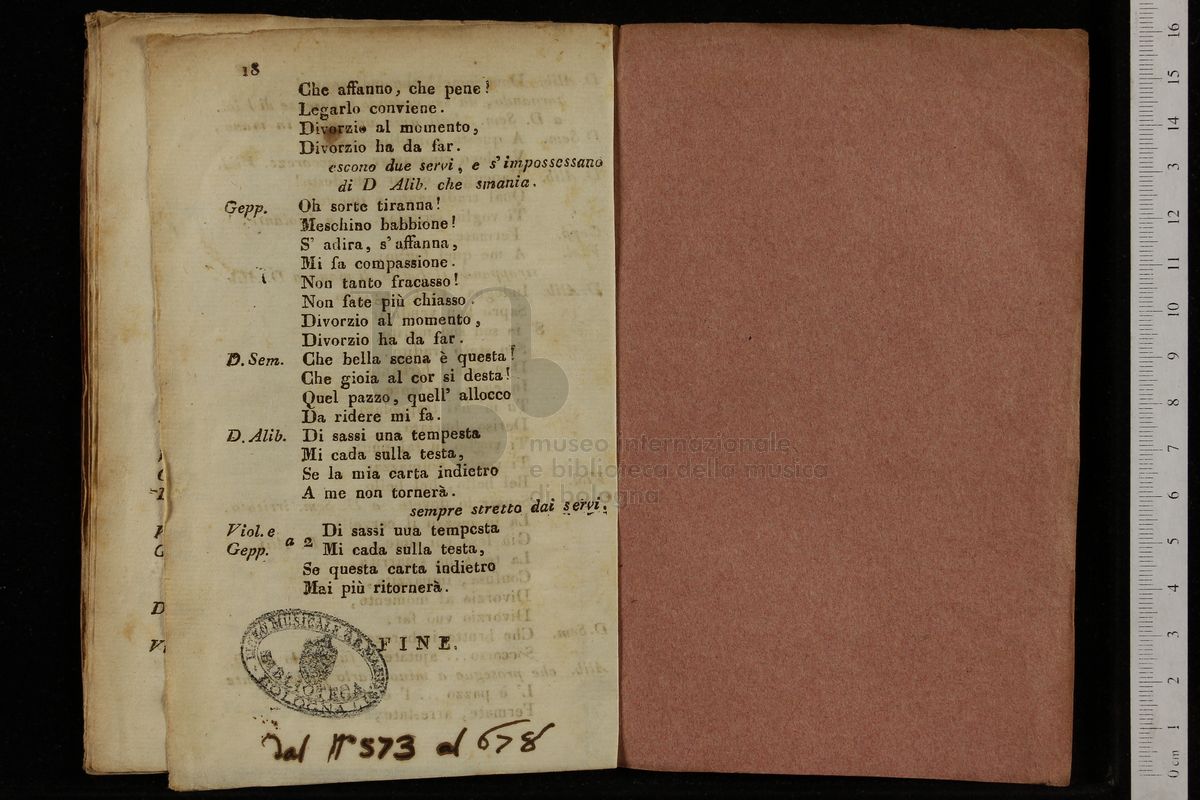 18
Che affanno, che pene!
Legarlo conviene.
Divorzio al momento,
Divorzio ha da far.
escono due servi, e s'impossessano
di D Alib. che smania.
Gepp. Oh sorte tiranna!
Meschino babbione!
S' adira, s'affanna,
Mi fa compassione.
Non tanto fracasso!
Non fate più chiasso.
Divorzio al momento,
Divorzio ha da far.
D. Sem. Che bella scena è questa!
Che gioia al cor si desta!
Quel pazzo, quell' allocco
Da ridere mi fa.
D. Alib. Di sassi una tempesta
Mi cada sulla testa,
Se la mia carta indietro
A me non tornerà.
sempre stretto dai servi.
Viol. e Gepp. a 2 Di sassi uua tempesta
Mi cada sulla testa,
Se questa carta indietro
Mai più ritornerà.
FINE.
LICEO MUSICALE
BIBLIOTECA
BOLOGNA
Dal N° 573 al 678
museo internazionale
e biblioteca della musica
di bologna
0 cm 1 2 3 4 5 6 7 8 9 10 11 12 13 14 15 16